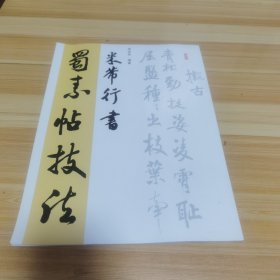 擬古
青松勁挺姿凌霄恥
屈盤種々出枝葉牽
米芾行書
蜀素帖技法